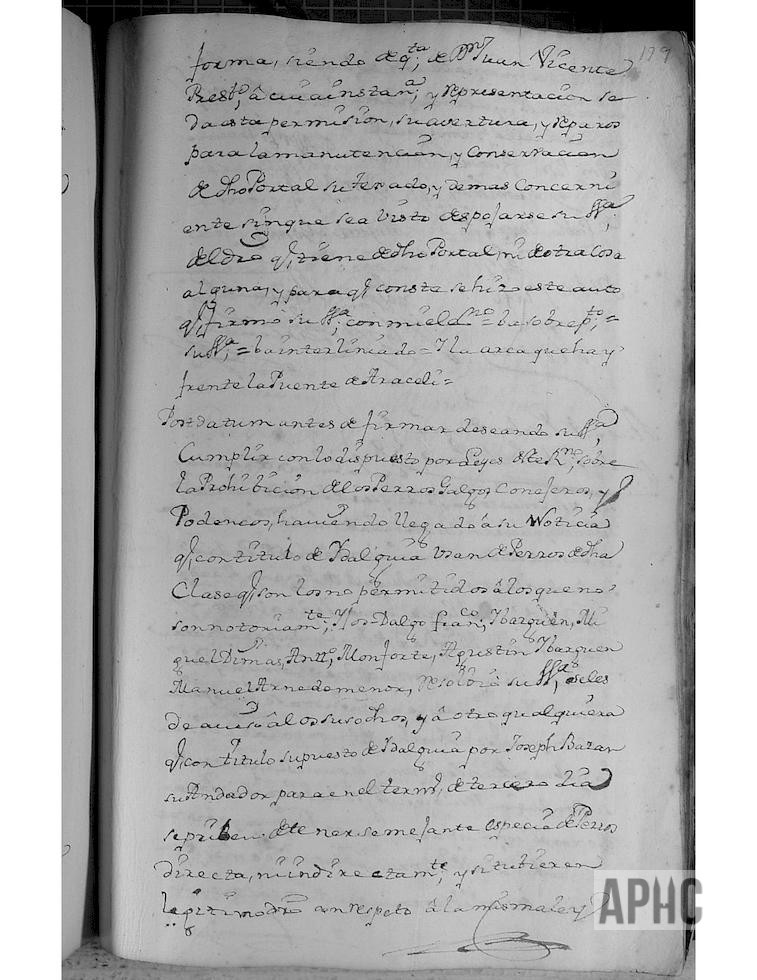 199
forma, siendo de q.ta de Dn Juan Vicente
Presb.o, â cuia instan.a, y representacion se
da esta permision, su avertura, y reparos
para la manutencion, y Conservacion
de dho Portal su texado, y demas Concerni
ente sin que sea visto despojarse su Ss.a,
del dro q.e tiene de dho Portal, ni de otra Cosa
alguna, y para q.e conste se hizo este auto
q.e firmo su Ss.a, con mi el Ssno = ba sobre p.to, =
su Ss.a, = ba interliniado = Y la arca que hay
frente la Puente de Araceli =
Postdatum antes de firmar deseando su Ss.a,
Cumplir con lo dispuesto por Leyes deste R.no, sobre
la Prohibicion de los Perros Galgos, Conejeros, y
Podencos, haviendo llegado â su Noticia
q.e con titulo de Ydalguia usan de Perros de dha
Clase q.e son los no permitidos â los que no
son notoriam.te, Yjos-Dalgo fran.co, Ybarguen, Mi
guel Dimas, Antt.o, Monforte, Agustin Ybarguen
Manuel Arnedo menor, resolbio su Ss.a, se les
de aviso â los susodhos, y â otro qualquiera
q.e con titulo supuesto de Ydalguia por Joseph Bazan
su Andador para en el term.o, de tercero dia
se priben de tener semejante especia de Perros
directa, ni indirectam.te, y si tubieren
legitimo dro con respeto â la misma ley
APHC